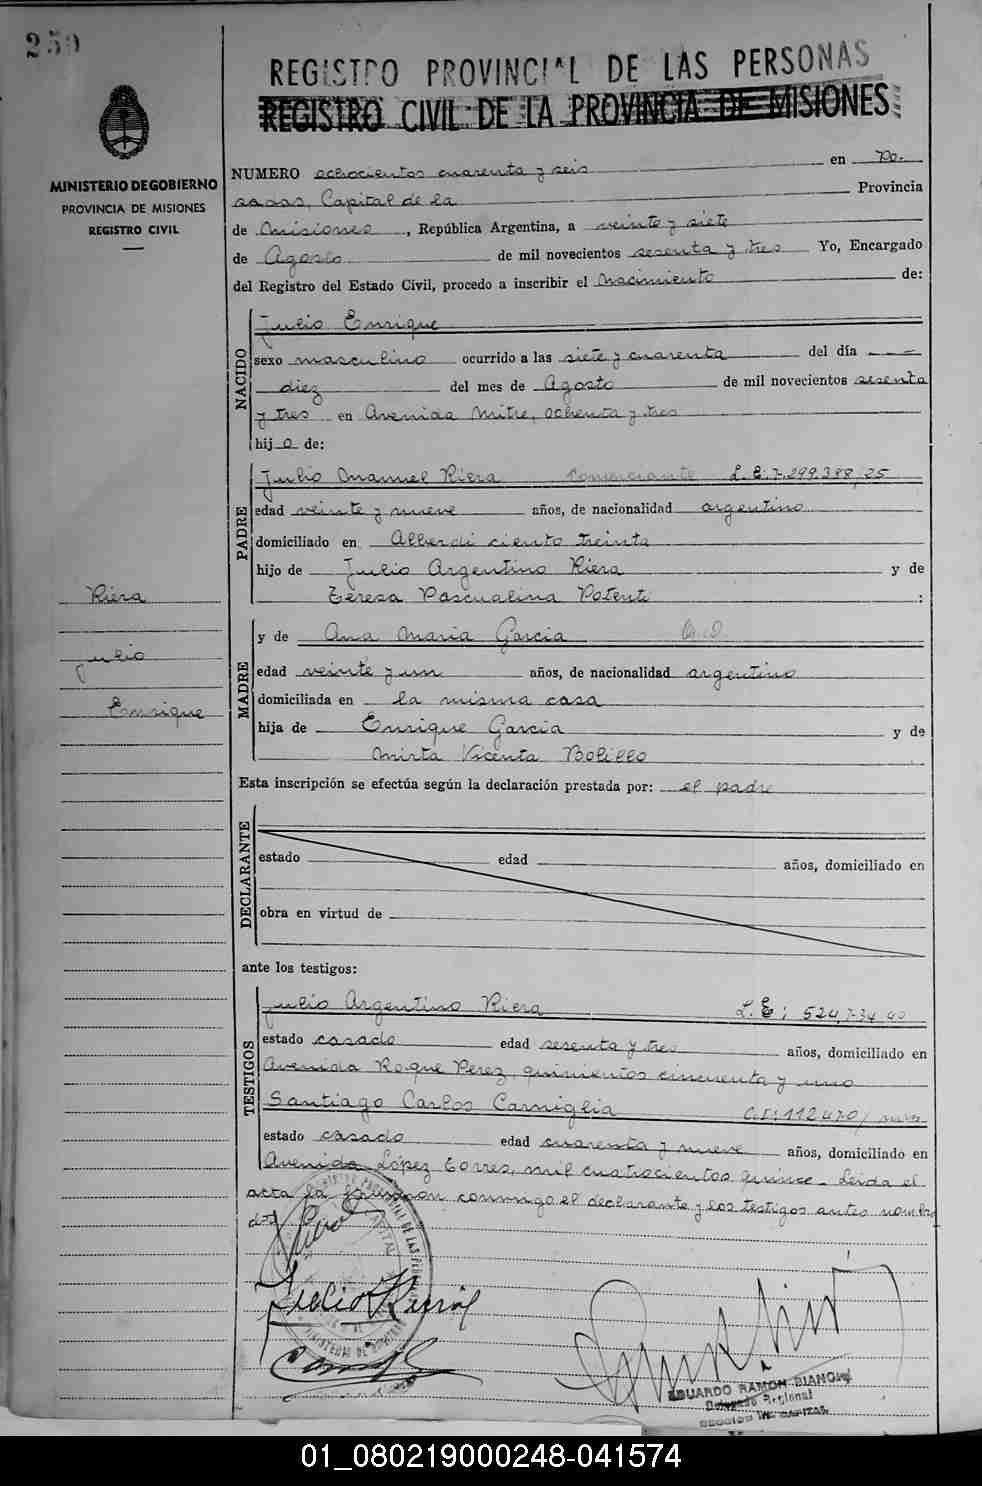 250
REGISTRO PROVINCIAL DE LAS PERSONAS
REGISTRO CIVIL DE LA PROVINCIA DE MISIONES
MINISTERIO DE GOBIERNO
PROVINCIA DE MISIONES
REGISTRO CIVIL
NUMERO ochocientos cuarenta y seis en Po-
sadas, Capital de la Provincia
de Misiones, República Argentina, a veinte y siete
de Agosto de mil novecientos sesenta y tres Yo, Encargado
del Registro del Estado Civil, procedo a inscribir el Nacimiento de:
NACIDO
Julio Enrique
sexo masculino ocurrido a las siete y cuarenta del día ---
diez del mes de Agosto de mil novecientos sesenta
y tres en Avenida Mitre, ochenta y tres
hijo de:
PADRE
Julio Manuel Riera comerciante L.E. 7.299.388,25
edad veinte y nueve años, de nacionalidad argentino
domiciliado en Alberdi ciento treinta
hijo de Julio Argentino Riera y de
Teresa Pascualina Potenti :
MADRE
y de Ana Maria Garcia
edad veinte y un años, de nacionalidad argentino
domiciliada en la misma casa
hija de Enrique Garcia y de
Mirta Vicenta Bolillo
Riera
Julio
Enrique
Esta inscripción se efectúa según la declaración prestada por: el padre
DECLARANTE
estado edad años, domiciliado en
obra en virtud de
ante los testigos:
TESTIGOS
Julio Argentino Riera L.E:
estado casado edad sesenta y tres años, domiciliado en
Avenida Roque Perez, quinientos cincuenta y uno
Santiago Carlos Carniglia
estado casado edad cuarenta y nueve años, domiciliado en
Avenida López Torres, mil cuatrocientos quince. Leida el
acta la firman conmigo el declarante y los testigos antes nombra
dos
Julio Riera
EDUARDO RAMON BIANCHI
Delegado Regional
SECCION 1ra. CAPITAL
01_080219000248-041574